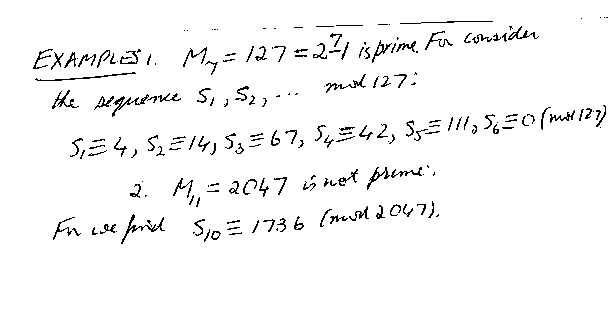 EXAMPLES 1. M₇ = 127 = 2⁷-1 is prime. For consider
the sequence S₁, S₂, ... mod 127:
S₁≡4, S₂≡14, S₃≡67, S₄≡42, S₅≡111, S₆≡0 (mod 127)
2. M₁₁ = 2047 is not prime:,
For we find S₁₀ ≡ 1736 (mod 2047).